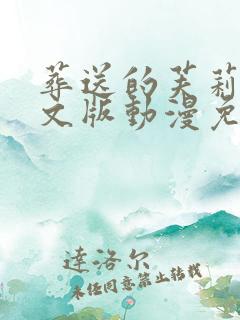 葬送的芙莉
文版動漫免
達洛尔
未经同意禁止转载